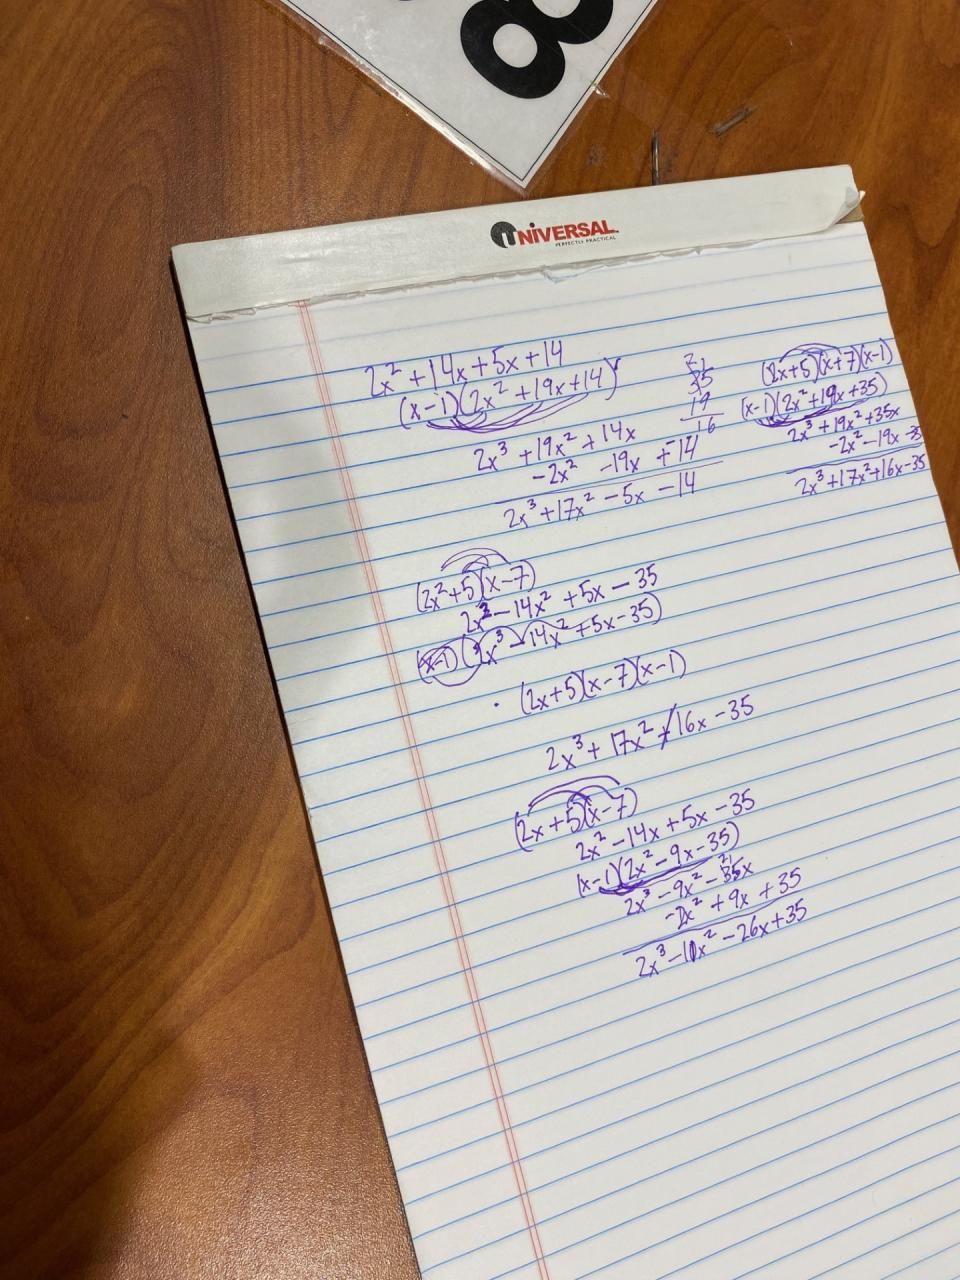 8
UNIVERSAL
PERFECTLY PRACTICAL
2x² + 14x + 5x + 14
(x-1)(2x² + 19x + 14)
2x³ + 19x² + 14x
-2x² - 19x + 14
2x³ + 17x² - 5x - 14
21
35
19
16
(2x+5)(x+7)(x-1)
(x-1)(2x² + 19x + 35)
2x³ + 19x² + 35x
-2x² - 19x - 35
2x³ + 17x² + 16x - 35
(2x² + 5)(x - 7)
2x³ - 14x² + 5x - 35
(x-1)(2x³ - 14x² + 5x - 35)
. (2x+5)(x-7)(x-1)
2x³ + 17x² + 16x - 35
(2x + 5)(x - 7)
2x² - 14x + 5x - 35
(x-1)(2x² - 9x - 35)
2x³ - 9x² - 35x
-2x² + 9x + 35
2x³ - 11x² - 26x + 35